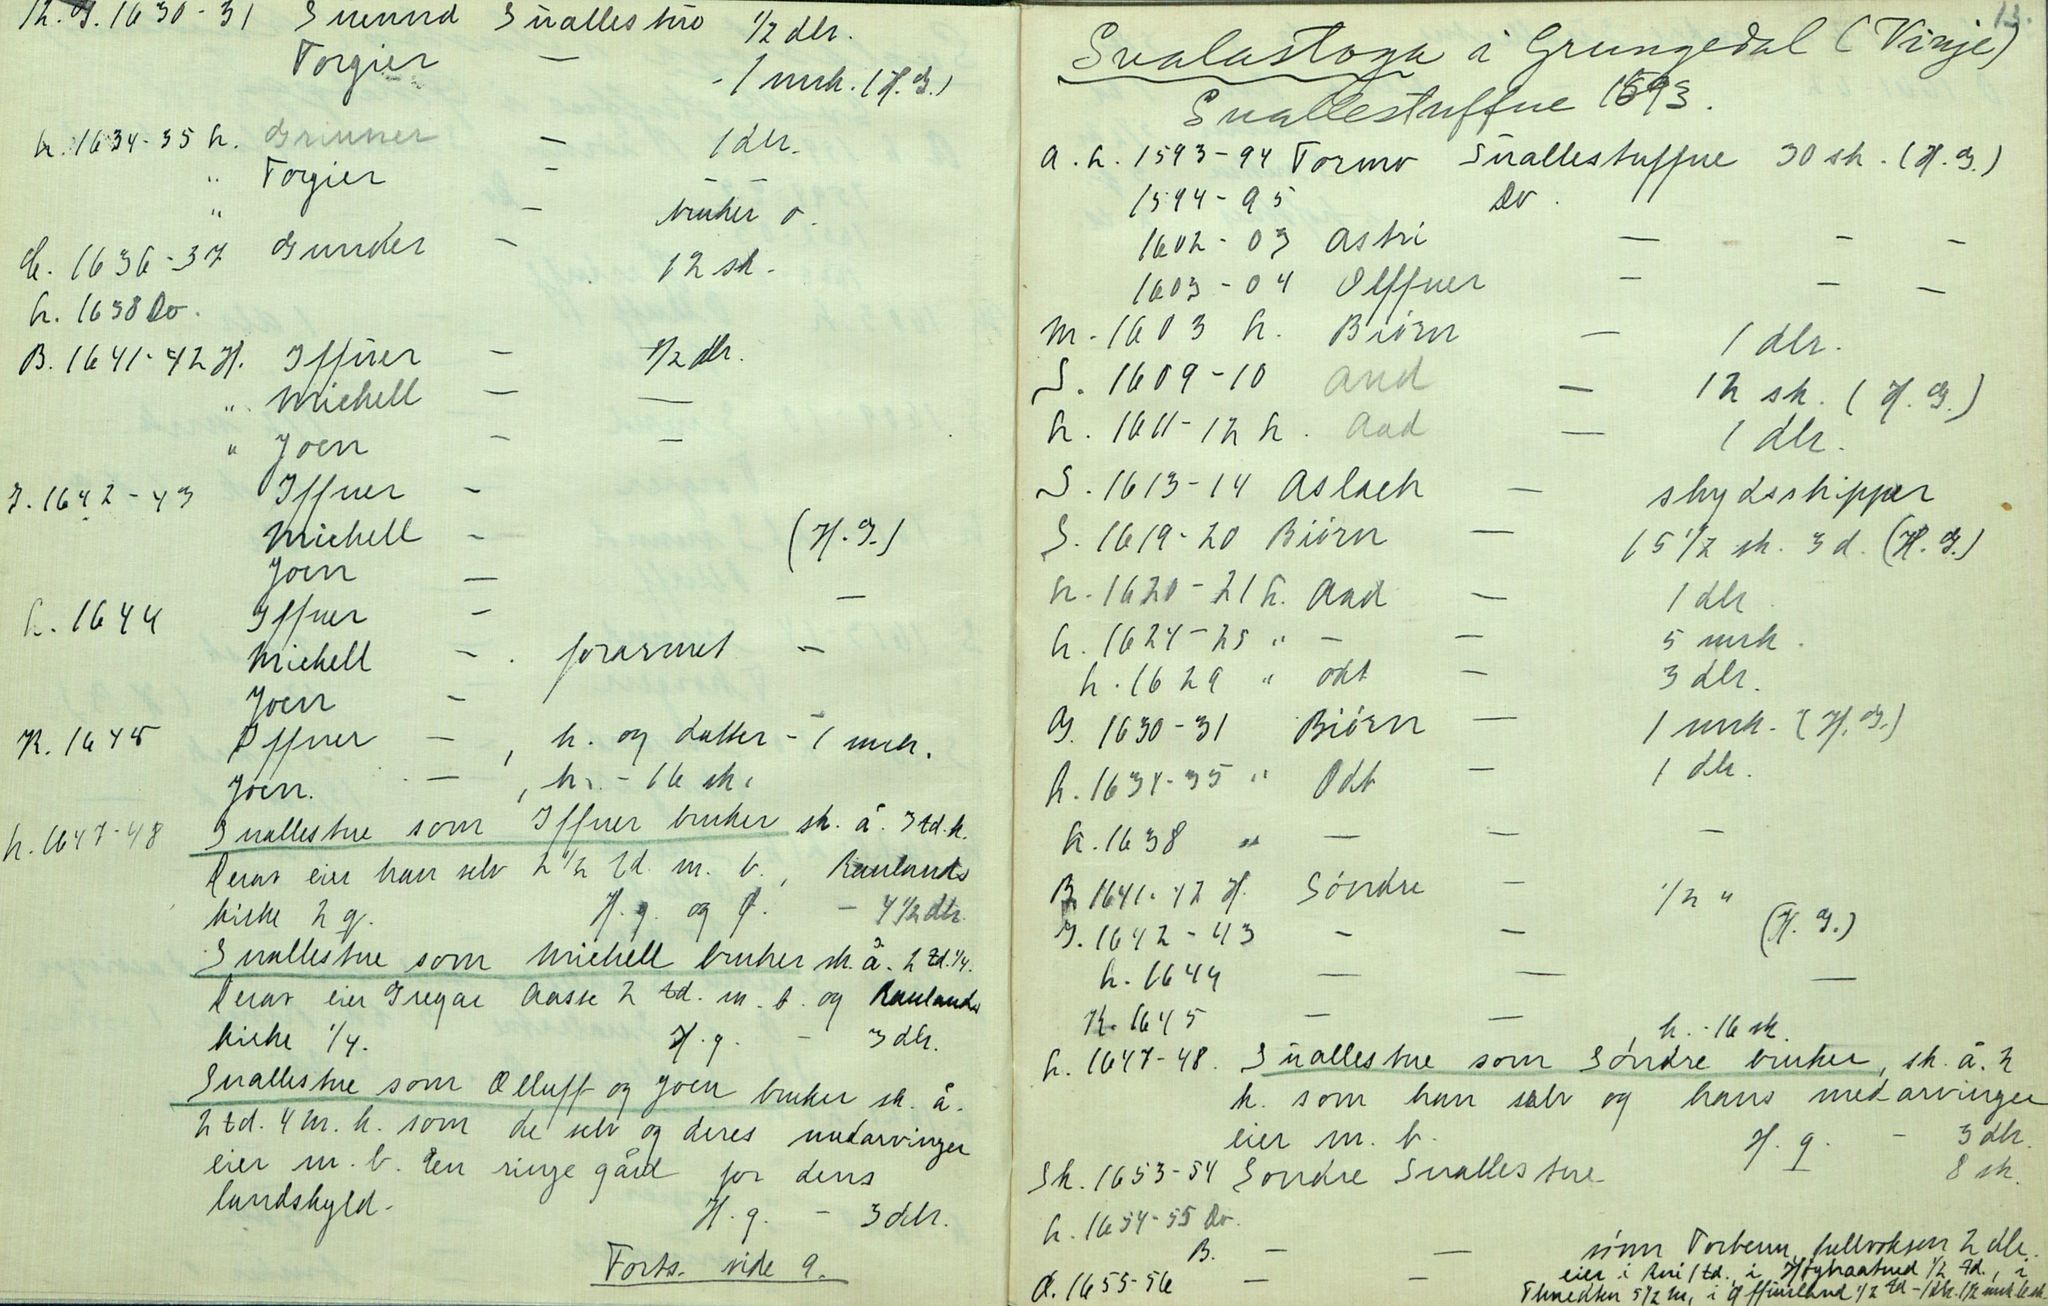 K. G. 1630-31 Suennd Suallestuo 1/2 dlr.
Torgier — - 1 mrk. (H. G.)
L. 1634-35 L. Grunner — 1 dlr.
" Torgier — —
" — bruker o.
L. 1636-37 Gunder — 12 sk.
L. 1638 Do.
B. 1641-42 H. Iffuer — 1/2 dlr.
" Michell — —
" Joen — —
J. 1642-43 Iffuer —
Michell — (H. G.)
Joen —
L. 1644 Iffuer — —
Michell — . forarmet —
Joen —
K. 1645 Øffuer — , k. og datter - 1 mrk.
Joen. — , k. - 16 sk.
L. 1647-48 Suallestue som Iffuer bruker sk. å. 3 td. k.
Derav eier han selv 2 1/2 td. m. b., Raulands
kirke 2 q. H. g. og Ø. - 4 1/2 dlr.
Suallestue som Michell bruker sk. å. 2 td. 1/4.
Derav eier Gregar Aasse 2 td. m. b. og Raulands
kirke 1/4. H. g. - 3 dlr.
Suallestue som Olluff og Joen bruker sk. å.
2 td. 4 m. k. som de selv og deres medarvinger
eier m. b. Een ringe gård for dens
landskyld. H. g. - 3 dlr.
Forts. side 9.
13.
Svalastoga i Grungedal (Vinje)
Suallestuffue 1593.
A. L. 1593-94 Tormo Suallestuffue 30 sk. (H. G.)
1594-95 Do.
1602-03 Astri — — —
1603-04 Olffuer — — —
M. 1603 L. Biørn — 1 dlr.
S. 1609-10 And — 12 sk. (H. G.)
L. 1611-12 L. Aad — 1 dlr.
S. 1613-14 Aslach — skydsskipper
S. 1619-20 Biørn — 15 1/2 sk. 3 d. (H. G.)
L. 1620-21 L. Aad — 1 dlr
L. 1624-25 " — — 5 mrk.
L. 1629 " Odt — 3 dlr.
G. 1630-31 Biørn — 1 mrk. (H. G.)
L. 1634-35 " Odt — 1 dlr.
L. 1638 " — — —
B. 1641-42 H. Søndre — 1/2 "
J. 1642-43 — — (H. G.)
L. 1644 — — —
K. 1645 — — k. - 16 sk.
L. 1647-48. Suallestue som Søndre bruker, sk. å. 2
k. som han selv og hans medarvinger
eier m. b. H. g. - 3 dlr.
Sk. 1653-54 Sondre Suallestue 8 sk.
L. 1654-55 Do.
B. — — sønn Torbenn, fullvoksen 2 dlr.
d. 1655-56 — — eier i 1 td., i 1/2 td., i
5 1/2 m, i 1/2 td